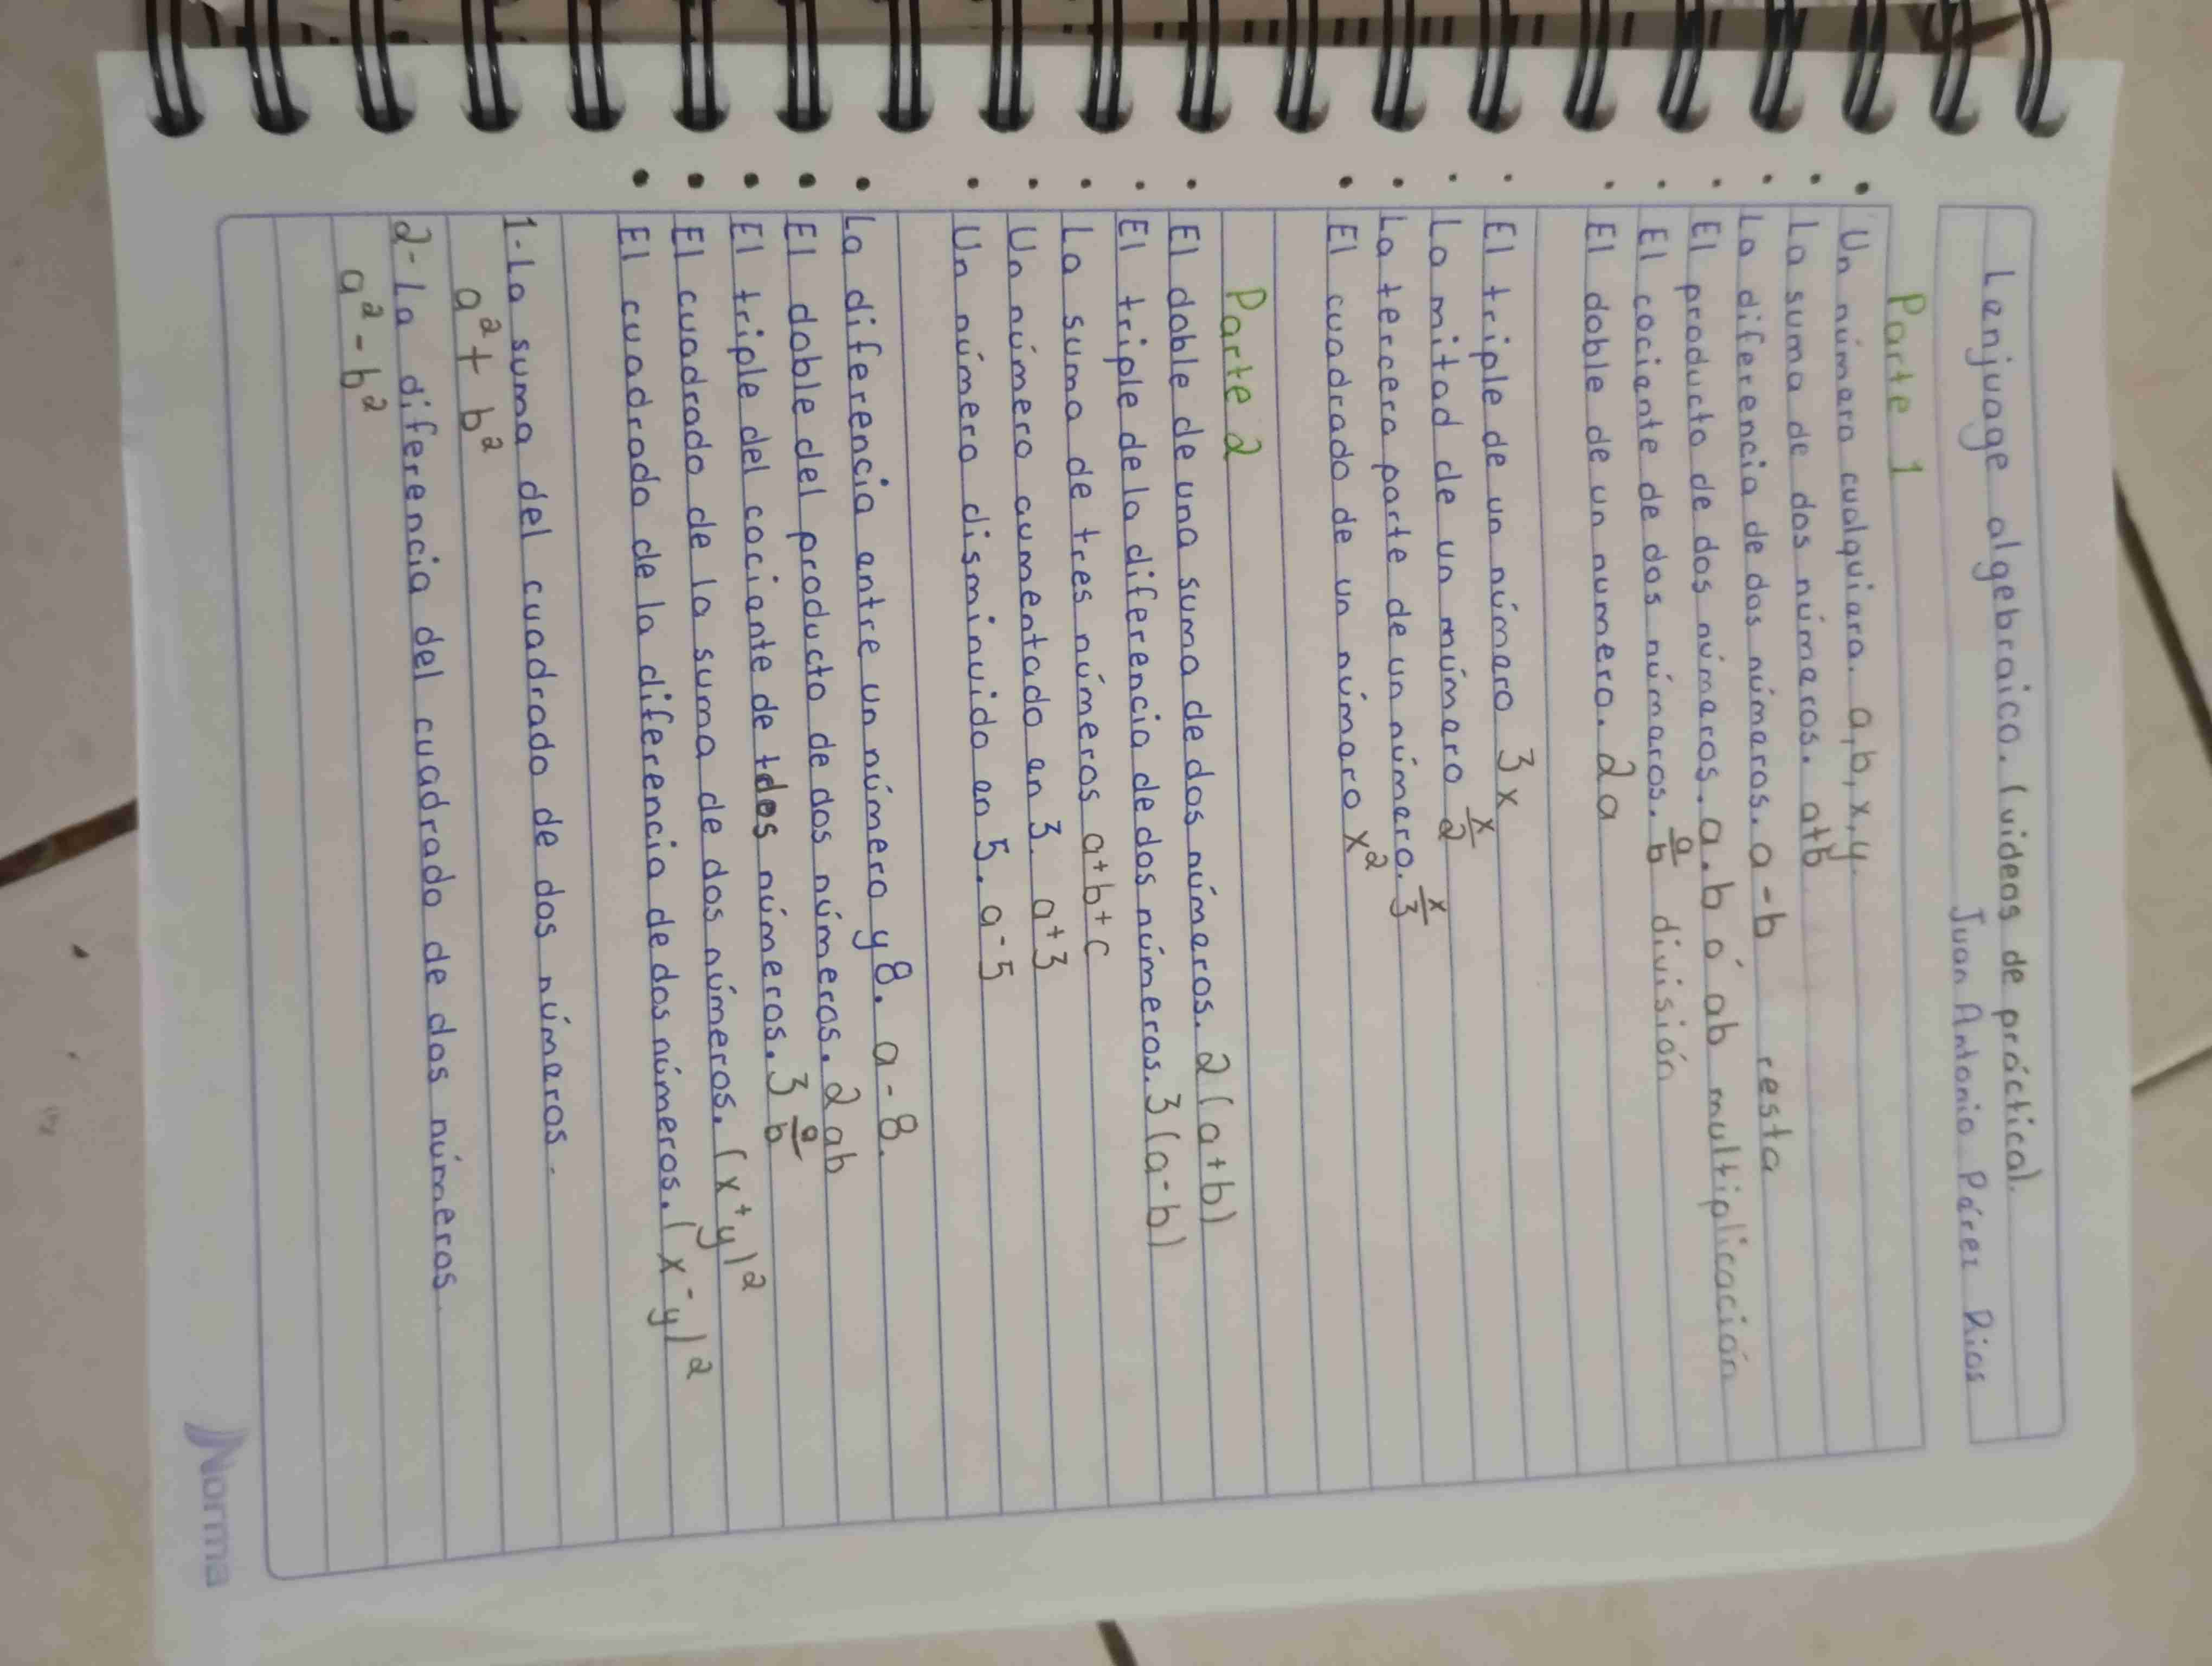 Lenjuage algebraico. (videos de práctica).
Juan Antonio Pérez Dios
Parte 1
• Un número cualquiera. a, b, x, y.
• La suma de dos números. a+b
• La diferencia de dos números. a - b resta
• El producto de dos números. a . b ó ab multiplicación
• El cociente de dos números. a/b división
• El doble de un numero. 2a
• El triple de un número 3x
• La mitad de un múmero x/2
• La tercera parte de un número. x/3
• El cuadrado de un número x²
Parte 2
• El doble de una suma de dos números. 2(a+b)
• El triple de la diferencia de dos números. 3(a-b)
• La suma de tres números a+b+c
• Un número aumentado en 3. a+3
• Un número disminuido en 5. a-5
• La diferencia entre un número y 8. a - 8.
• El doble del producto de dos números. 2ab
• El triple del cociente de tdos números. 3 a/b
• El cuadrado de la suma de dos números. (x+y)²
• El cuadrado de la diferencia de dos números. (x-y)²
1-La suma del cuadrado de dos números.
a² + b²
2- La diferencia del cuadrado de dos números.
a² - b²
Norma